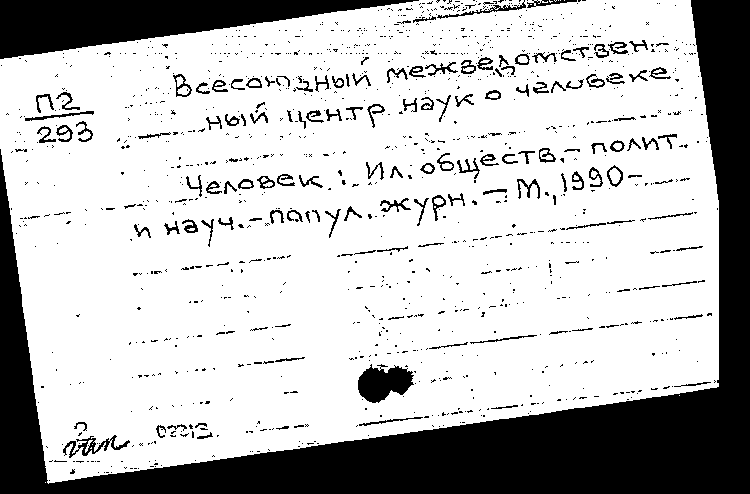 П2
293
Всесоюзный межведомствен-
ный центр наук о человеке.
Человек : Ил. обществ.- полит.
и науч.-попул. журн. — М., 1990-